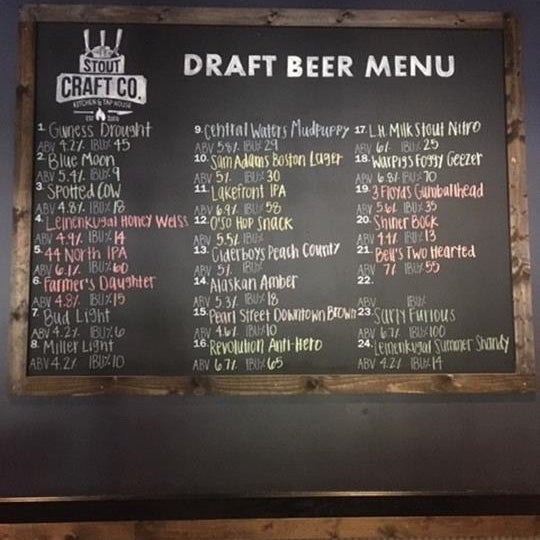 STOUT
CRAFT CO.
KITCHEN & TAP HOUSE
EST
DRAFT BEER MENU
1. Guiness Drought
ABV 4.2% IBU% 45
2. Blue Moon
ABV 5.4% IBU% 9
3. Spotted Cow
ABV 4.8% IBU% 18
4. Leinenkugal Honey Weiss
ABV 4.9% IBU% 14
5. 44 North IPA
ABV 6.1% IBU% 60
6. Farmer's Daughter
ABV 4.8% IBU% 15
7. Bud Light
ABV 4.2% IBU% 6
8. Miller Light
ABV 4.2% IBU% 10
9. Central Waters Mudpuppy
ABV 5.5% IBU% 29
10. Sam Adams Boston Lager
ABV 5% IBU% 30
11. Lakefront IPA
ABV 6.9% IBU% 58
12. O'so Hop Snack
ABV 5.5% IBU%
13. Ciderboys Peach County
ABV 5% IBU%
14. Alaskan Amber
ABV 5.3% IBU% 18
15. Pearl Street Downtown Brown
ABV 4.6% IBU% 10
16. Revolution Anti-Hero
ABV 6.7% IBU% 65
17. L.H. Milk Stout Nitro
ABV 6% IBU% 25
18. Warpigs Foggy Geezer
ABV 6.8% IBU% 70
19. 3 Floyds Gumballhead
ABV 5.6% IBU% 35
20. Shiner Bock
ABV 4.4% IBU% 13
21. Bell's Two Hearted
ABV 7% IBU% 55
22.
ABV IBU%
23. Surly Furious
ABV 6.7% IBU% 100
24. Leinenkugal Summer Shandy
ABV 4.2% IBU% 14